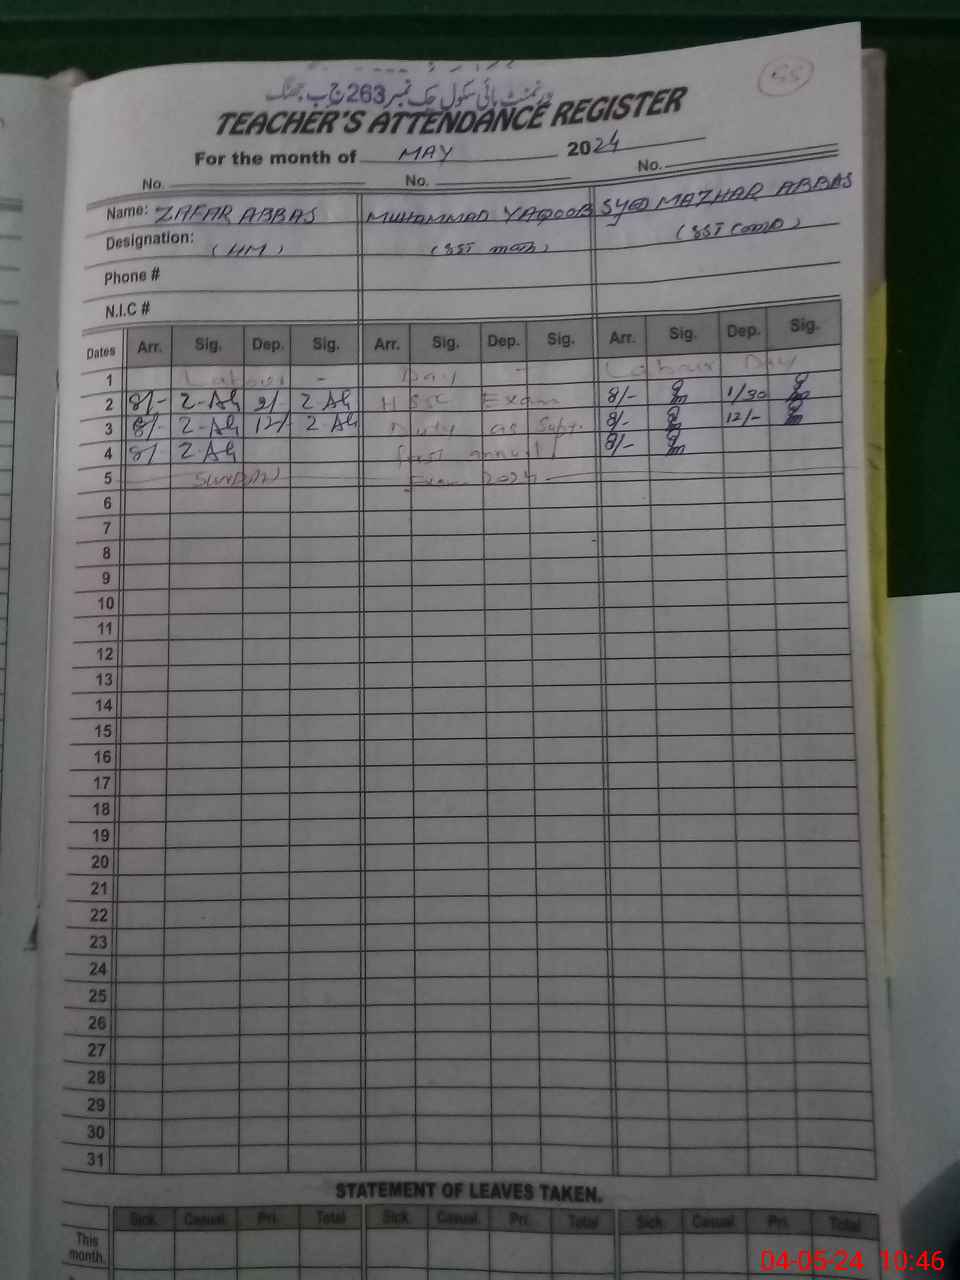 گورنمنٹ ہائی سکول چک نمبر 263 ج ب جھنگ
55
TEACHER'S ATTENDANCE REGISTER
For the month of MAY 2024
No. No. No.
Name: ZAFAR ABBAS MUHAMMAD YAQOOB SYED MAZHAR ABBAS
Designation: (HM) (SST math) (SST comp)
Phone #
N.I.C #
Dates Arr. Sig. Dep. Sig. Arr. Sig. Dep. Sig. Arr. Sig. Dep. Sig.
1 Labour - Day - Labour Day
2 8/- Z-Ab 2/- Z-Ab HSSC Exam 8/- 1/30
3 8/- Z-Ab 12/- Z-Ab Duty as Supt. 8/- 12/-
4 8/- Z-Ab first annual 8/-
5 SUNDAY Exam 2024
6
7
8
9
10
11
12
13
14
15
16
17
18
19
20
21
22
23
24
25
26
27
28
29
30
31
STATEMENT OF LEAVES TAKEN.
Sick. Casual. Pri. Total Sick. Casual. Pri. Total Sick. Casual. Pri. Total
This
month.
04-05-24 10:46